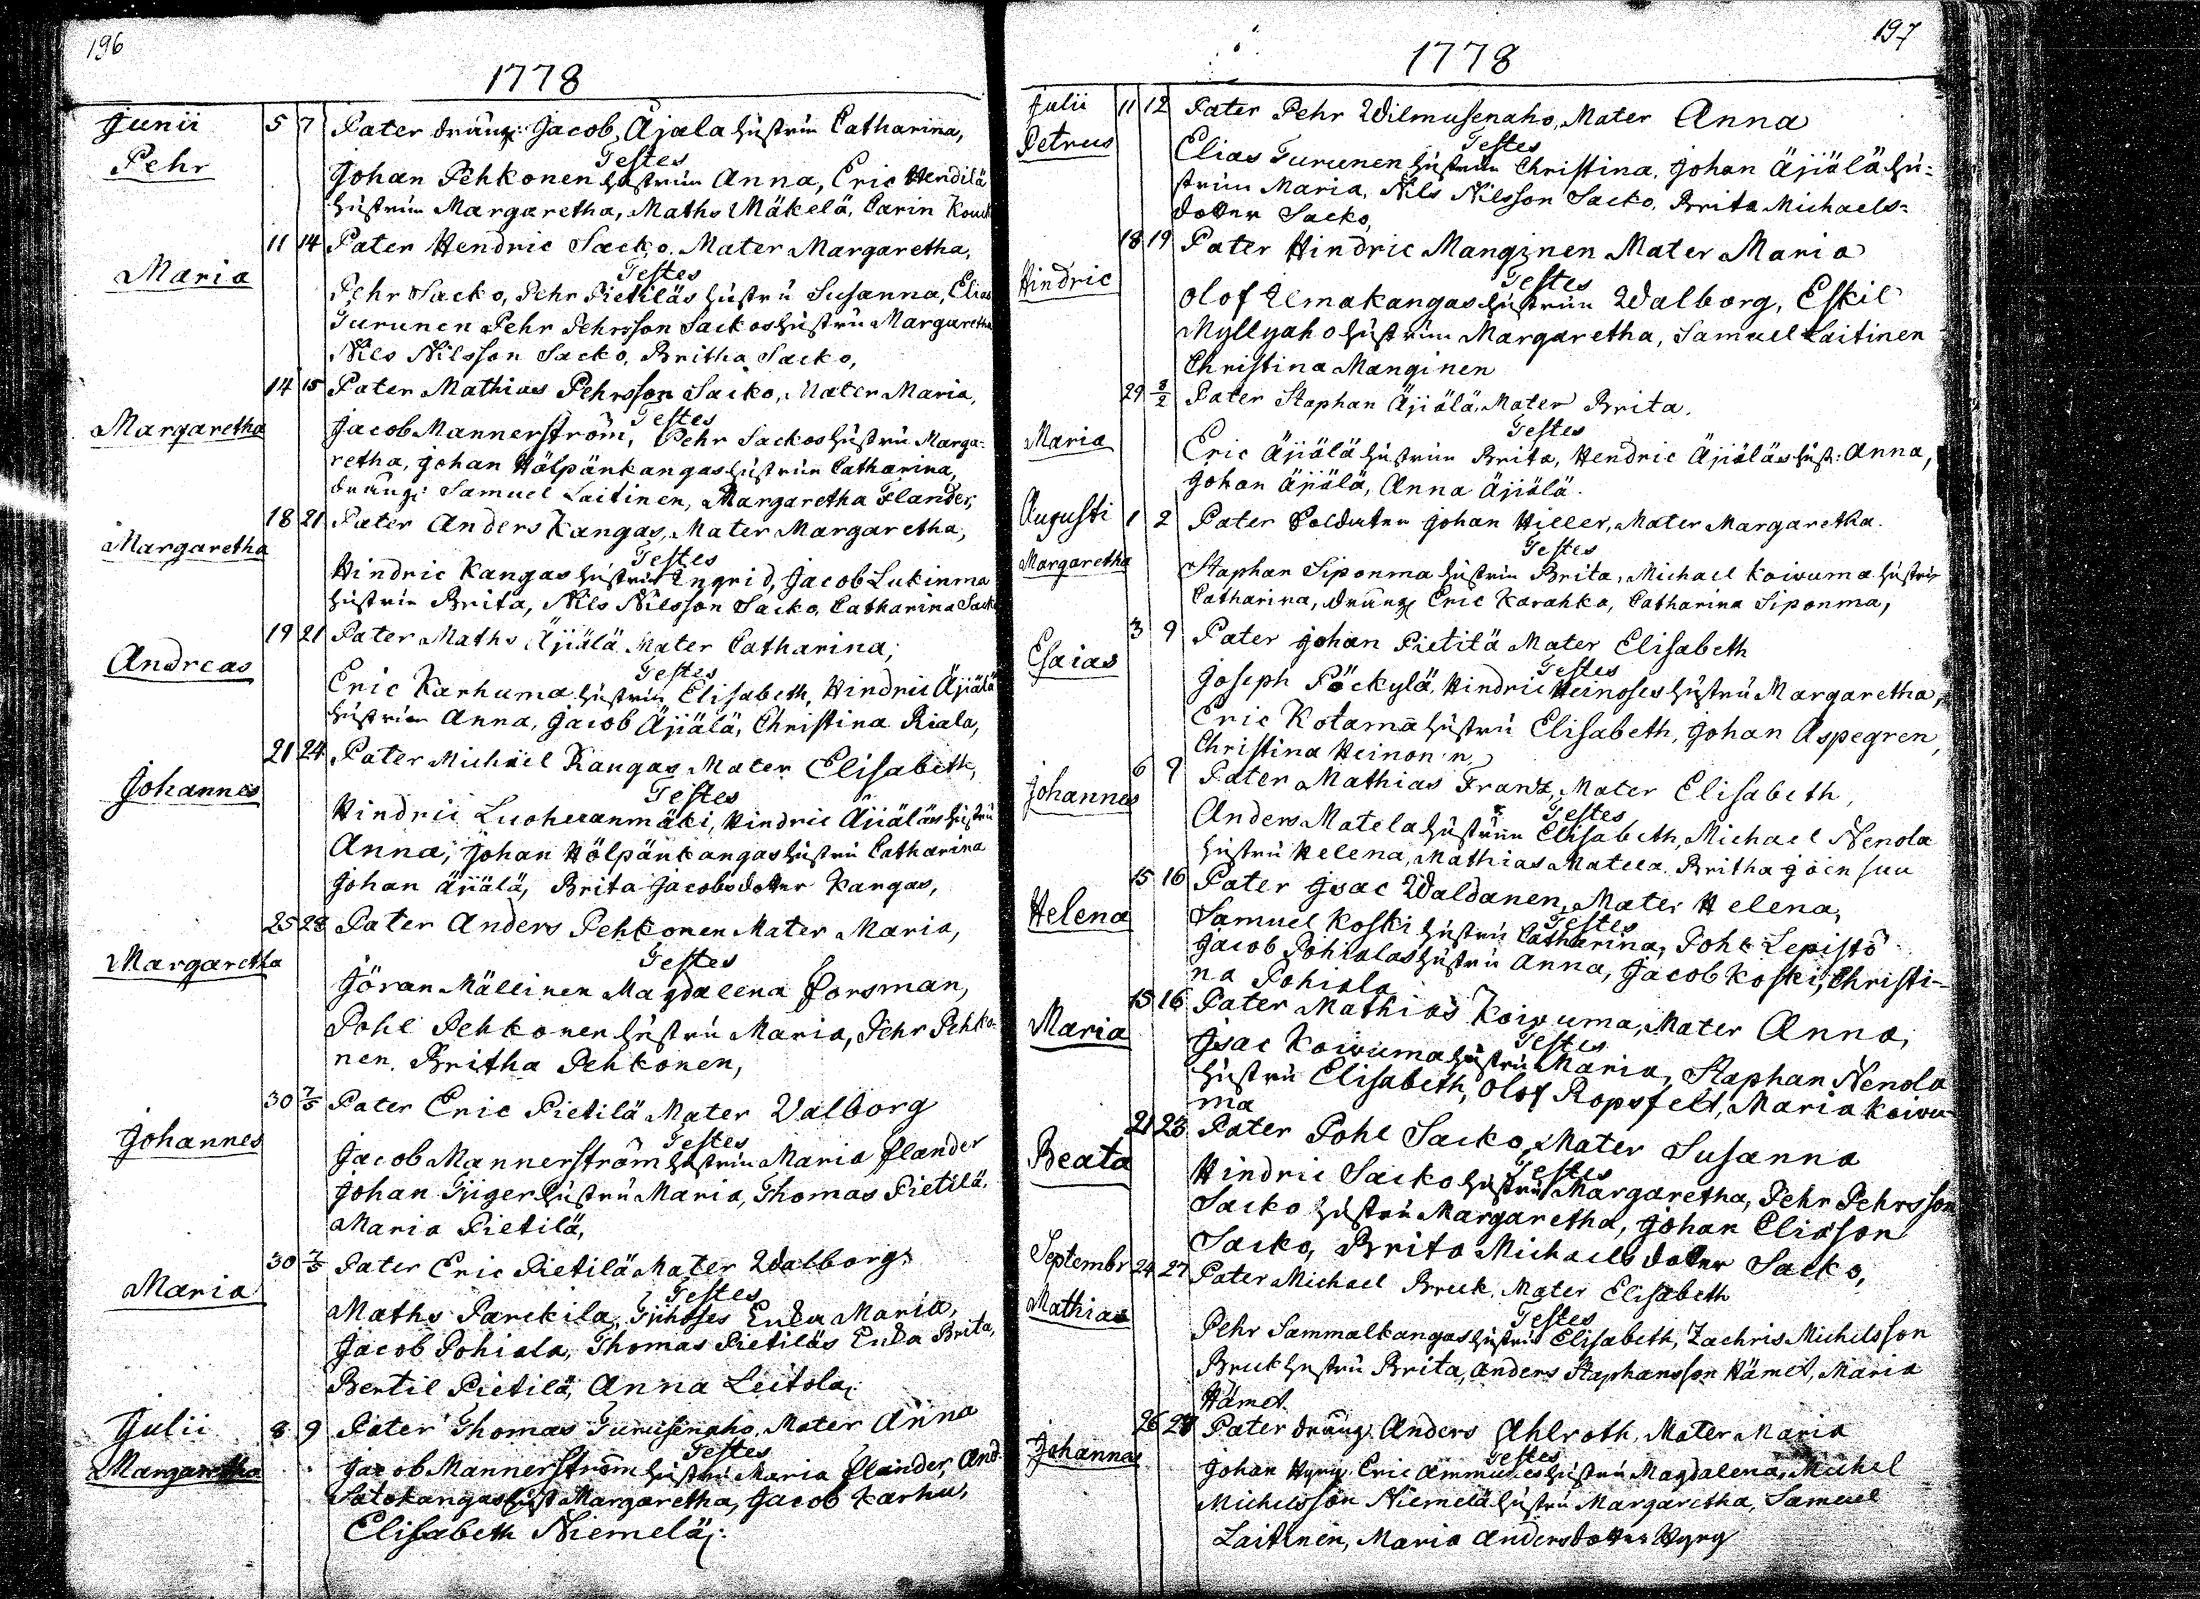 196
1778
Junii 5 7 Pater dräng: Jacob Äjälä hustrun Catharina,
Pehr Testes
Johan Pehkonen hustrun Anna, Eric Hendilä
hustrun Margaretha, Maths Mäkelä, Carin
11 14 Pater Hendric Sacko, Mater Margaretha,
Maria Testes
Pehr Sacko, Pehr Pietiläs hustru Susanna, Elias
Turunen Pehr Pehrsson Sackos hustru Margaretha
Nils Nilsson Sacko, Britha Sacko,
14 15 Pater Mathias Pehrsson Sacko, Mater Maria,
Margaretha Testes
Jacob Mannerström, Pehr Sackos hustru Marga-
retha, Johan Hölpänkangas hustrun Catharina,
dräng: Samuel Laitinen, Margaretha Flander,
18 21 Pater Anders Kangas, Mater Margaretha,
Margaretha Testes
Hindric Kangas hustrun Ingrid, Jacob Lukinma
hustrun Brita, Nils Nilsson Sacko, Catharina Sacko
19 21 Pater Maths Äjiälä Mater Catharina;
Andreas Testes
Eric Karhuma hustrun Elisabeth, Hindric Äjiälä
hustrun Anna, Jacob Äjiälä, Christina Riala,
21 24 Pater Michäel Kangas Mater Elisabeth,
Johannes Testes
Hindric Luoheranmäki, Hindric Äjiäläs hustru
Anna, Johan Hölpänkangas hustru Catharina
Johan Äjiälä, Brita Jacobsdotter Kangas,
25 28 Pater Anders Pehkonen Mater Maria,
Margaretha Testes
Jöran Mällinen Magdalena Forsman,
Pohl Pehkonen hustru Maria, Pehr Pehko-
nen, Britha Pehkonen,
30 7/5 Pater Eric Pietilä Mater Valborg
Johannes Testes
Jacob Mannerström hustrun Maria Flander
Johan hustru Maria, Thomas Pietilä,
Maria Pietilä,
30 7/5 Pater Eric Pietilä Mater Walborg.
Maria Testes
Maths Parckila, Enka Maria,
Jacob Pohiala, Thomas Pietiläs Enka Brita,
Bertil Pietilä, Anna Leitola,
Julii 8 9 Pater Thomas Turuisenaho, Mater Anna
Margaretha Testes
Jacob Mannerström hustru Maria Flander, And.
Satokangas hust. Margaretha, Jacob Karhu,
Elisabeth Niemelä,
197
1778
Julii 11 12 Pater Pehr Wilmusenaho, Mater Anna
Petrus Testes
Elias Turunen hustrun Christina, Johan Äjiälä hu-
strun Maria, Nils Nilsson Sacko, Brita Michaels-
dotter Sacko,
18 19 Pater Hindric Manginen Mater Maria
Hindric Testes
Olof Ilmakangas hustrun Walborg, Eskil
Myllyaho hustrun Margaretha, Samuel Laitinen
Christina Manginen
29 8/2 Pater Staphan Äjiälä, Mater Brita.
Maria Testes
Eric Äjiälä hustrun Brita, Hendric Äjiäläs hust: Anna,
Johan Äjiälä, Anna Äjiälä.
Augusti 1 2 Pater Soldaten Johan Hiller, Mater Margaretha.
Margaretha Testes
Staphan Siponma hustrun Brita, Michael Koivuma hustru
Catharina, dräng Eric Karahka, Catharina Siponma,
3 9 Pater Johan Pietilä Mater Elisabeth
Esaias Testes
Joseph Pöckylä, Hindric Heinoses hustru Margaretha,
Eric Kotama hustru Elisabeth, Johan Aspegren,
Christina Heinonen
6 9 Pater Mathias Franz, Mater Elisabeth,
Johannes Testes
Anders Matela hustrun Elisabeth, Michael Nenola
hustru Helena, Mathias Matela, Britha Joensuu
15 16 Pater Isac Waldanen, Mater Helena,
Helena Testes
Samuel Koski hustru Catharina, Pohl Lepistö
Jacob Pohialas hustru Anna, Jacob Koski, Christi-
na Pohiala
15 16 Pater Mathias Koivuma, Mater Anna,
Maria Testes
Isac Koivuma hustru Maria, Staphan Nenola
hustru Elisabeth, Olof Ropsfelt, Maria Koivu-
ma
21 23 Pater Pohl Sacko, Mater Susanna
Beata Testes
Hindric Sacko hustru Margaretha, Pehr Pehrsson
Sacko hustru Margaretha, Johan Eliasson
Sacko, Brita Michaelsdotter Sacko,
Septembr 24 27 Pater Michael Bruk, Mater Elisabeth
Mathias Testes
Pehr Sammalkangas hustru Elisabeth, Zachris Michelsson
Bruk hustru Brita, Anders Staphansson Hämet, Maria
Hämet
26 28 Pater dräng: Anders Ahlroth, Mater Maria
Johannes Testes
Johan Hyry, Eric Ammuses hustru Magdalena, Michel
Michelsson Niemelä hustru Margaretha, Samuel
Laitinen, Maria Andersdotter Hyry